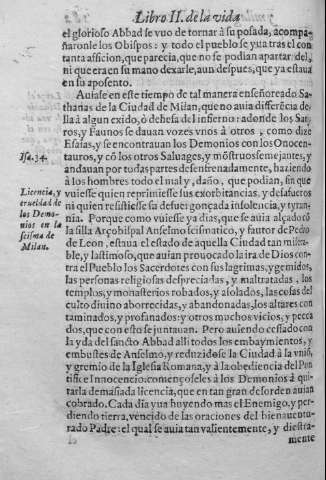 Libro II. de la vida
el glorioso Abbad se vuo de tornar à su posada, acompa-
ñaronle los Obispos: y todo el pueblo se yua tras el con
tanta afficion, que parecia, que no se podian apartar del,
ni que era en su mano dexarle, aun despues, que ya estaua
en su aposento.
Auiase en este tiempo de tal manera enseñoreado Sa-
thanas de la Ciudad de Milan, que no auia differẽcia de-
lla à algun exido, ò dehesa del infierno: adonde los Saty-
ros, y Faunos se dauan vozes vnos à otros, como dize
Esaias, y se encontrauan los Demonios con los Onocen-
Isa. 34.
tauros, y cõ los otros Saluages, y mõstruos semejantes, y
andauan por todas partes desenfrenadamente, haziendo
à los hombres todo el mal, y daño, que podian, sin que
Licencia, y
vuiesse quien reprimiesse sus exorbitancias, y desafueros
crueldad de
ni quien resistiesse su desuergonçada insolencia, y tyran-
los Demo-
nia. Porque como vuiesse ya dias, que se auia alçado cõ
nios en la
la silla Arçobispal Anselmo scismatico, y fautor de Pedro
scisma de
de Leon, estaua el estado de aquella Ciudad tan mise-
Milan.
rable, y lastimoso, que auian prouocado la ira de Dios con-
tra el Pueblo los Sacerdotes con sus lagrimas, y gemidos,
las personas religiosas despreciadas, y maltratadas, los
templos, y monasterios robados, y asolados, las cosas del
culto diuino aborrecidas, y abandonadas, los altares con
taminados, y profanados: y otros muchos vicios, y pecca
dos, que con esto se juntauan. Pero auiendo cessado con
la yda del sancto Abbad alli todos los embaymientos, y
embustes de Anselmo, y reduzidose la Ciudad à la vniõ,
y gremio de la Iglesia Romana, y à la obediencia del Pon
tifice Innocencio. començoseles à los Demonios à qui-
tar la demasiada licencia, que en tan gran desorden auian
cobrado. Cada dia yua huyendo mas el Enemigo, y per-
diendo tierra, vencido de las oraciones del bienauentu-
rado Padre: el qual se auia tan valientemente, y diestra-
mente